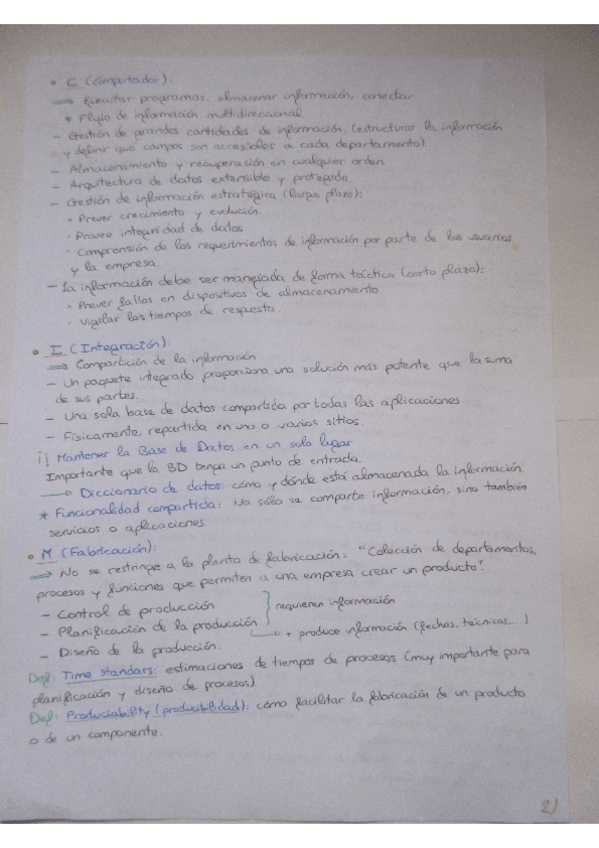 • C (Computador):
⇒ Ejecutar programas, almacenar información, conectar
* Flujo de información multidireccional
- Gestión de grandes cantidades de información, (estructurar la información
y definir qué campos son accesibles a cada departamento).
- Almacenamiento y recuperación en cualquier orden.
- Arquitectura de datos extensible y protegida.
- Gestión de información estratégica (largo plazo):
• Prever crecimiento y evolución.
• Provee integridad de datos
• Comprensión de los requerimientos de información por parte de los usuarios
y la empresa.
- La información debe ser manejada de forma táctica (corto plazo):
• Prever fallos en dispositivos de almacenamiento.
• Vigilar los tiempos de respuesta.
• I (Integración):
⇒ Compartición de la información
- Un paquete integrado proporciona una solución más potente que la suma
de sus partes.
- Una sola base de datos compartida por todas las aplicaciones
- Físicamente, repartida en uno o varios sitios.
¡¡ Mantener la Base de Datos en un solo lugar
Importante que la BD tenga un punto de entrada.
→ Diccionario de datos: cómo y dónde está almacenada la información
* Funcionalidad compartida: No sólo se comparte información, sino también
servicios o aplicaciones.
• M (Fabricación):
⇒ No se restringe a la planta de fabricación: "Colección de departamentos,
procesos y funciones que permiten a una empresa crear un producto".
- Control de producción
- Planificación de la producción } requieren información
- Diseño de la producción. → + produce información (fechas, técnicas,...)
Def: Time standars: estimaciones de tiempos de procesos (muy importante para
planificación y diseño de procesos)
Def: Produciability (producibilidad): cómo facilitar la fabricación de un producto
o de un componente.
2)